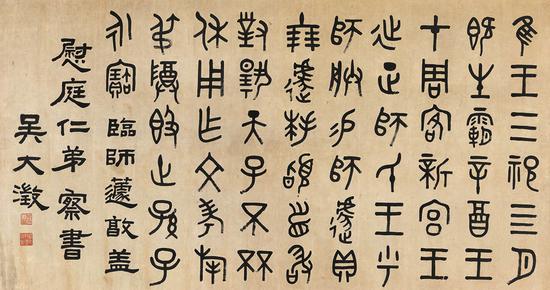 隹王三祀四月
既生霸辛酉王
才周客新宮王
㢟正師氏王乎
師朕易師遽貝
十朋遽拜𩒨首敢
對揚天子不𠀠
休用乍文考旄
叔尊𣪘世孫子
永寶 臨師遽敦蓋
慰庭仁弟察書
吳大澂